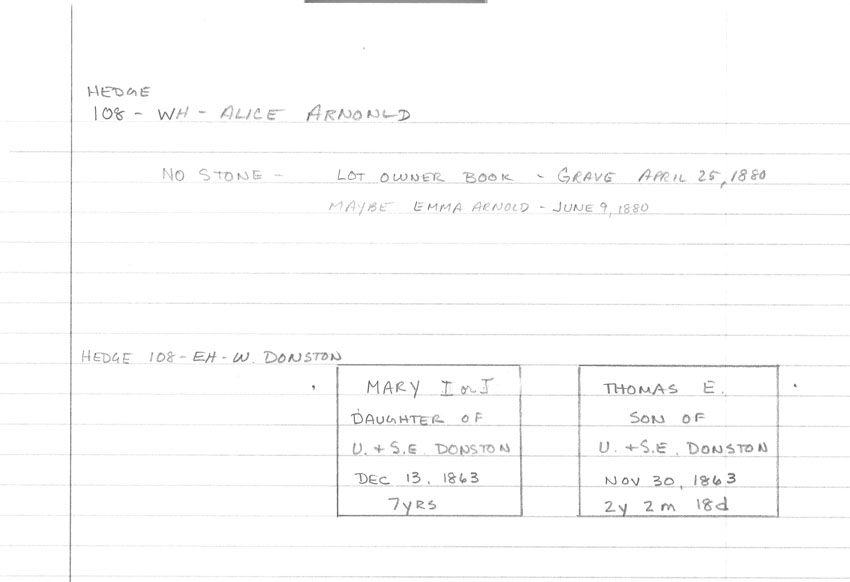 HEDGE
108 - WH - ALICE ARNONLD
NO STONE - LOT OWNER BOOK - GRAVE APRIL 25, 1880
MAYBE EMMA ARNOLD - JUNE 9, 1880
HEDGE 108 - EH - W. DONSTON
MARY I or J
DAUGHTER OF
U. + S.E. DONSTON
DEC 13, 1863
7YRS
THOMAS E.
SON OF
U. + S.E. DONSTON
NOV 30, 1863
2y 2m 18d